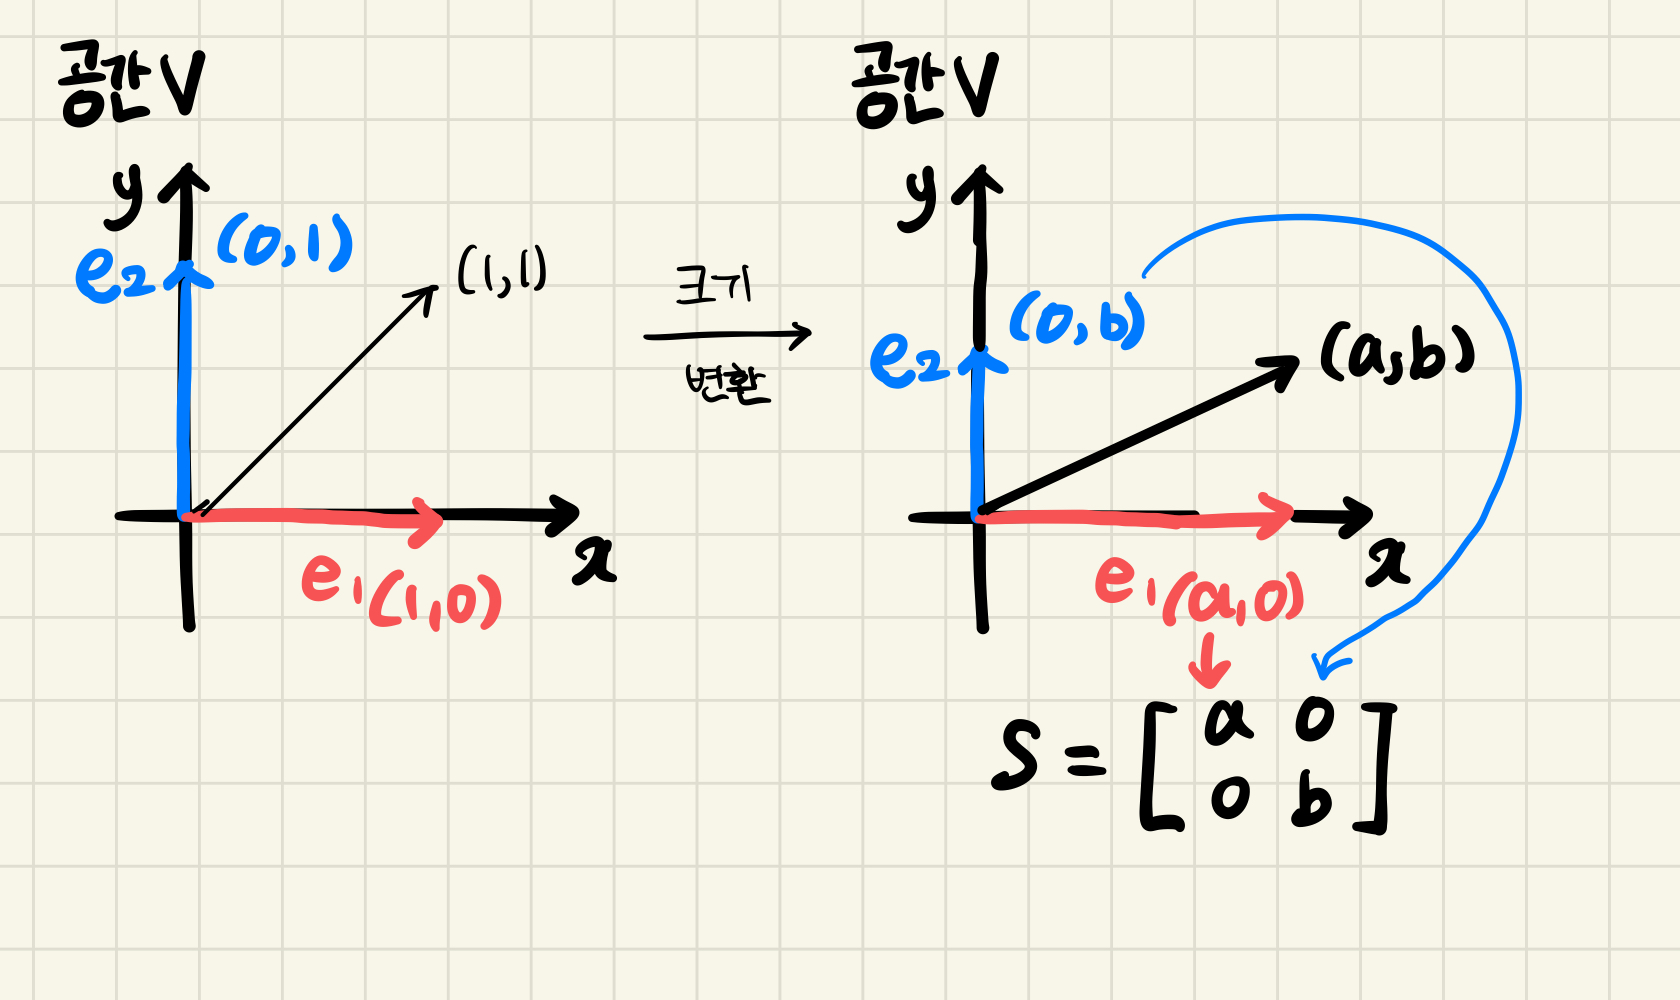 공간 V
y
e2 (0,1)
(1,1)
e1 (1,0)
x
크기
변환
공간 V
y
e2 (0,b)
(a,b)
e1 (a,0)
x
S = [ a 0
0 b ]